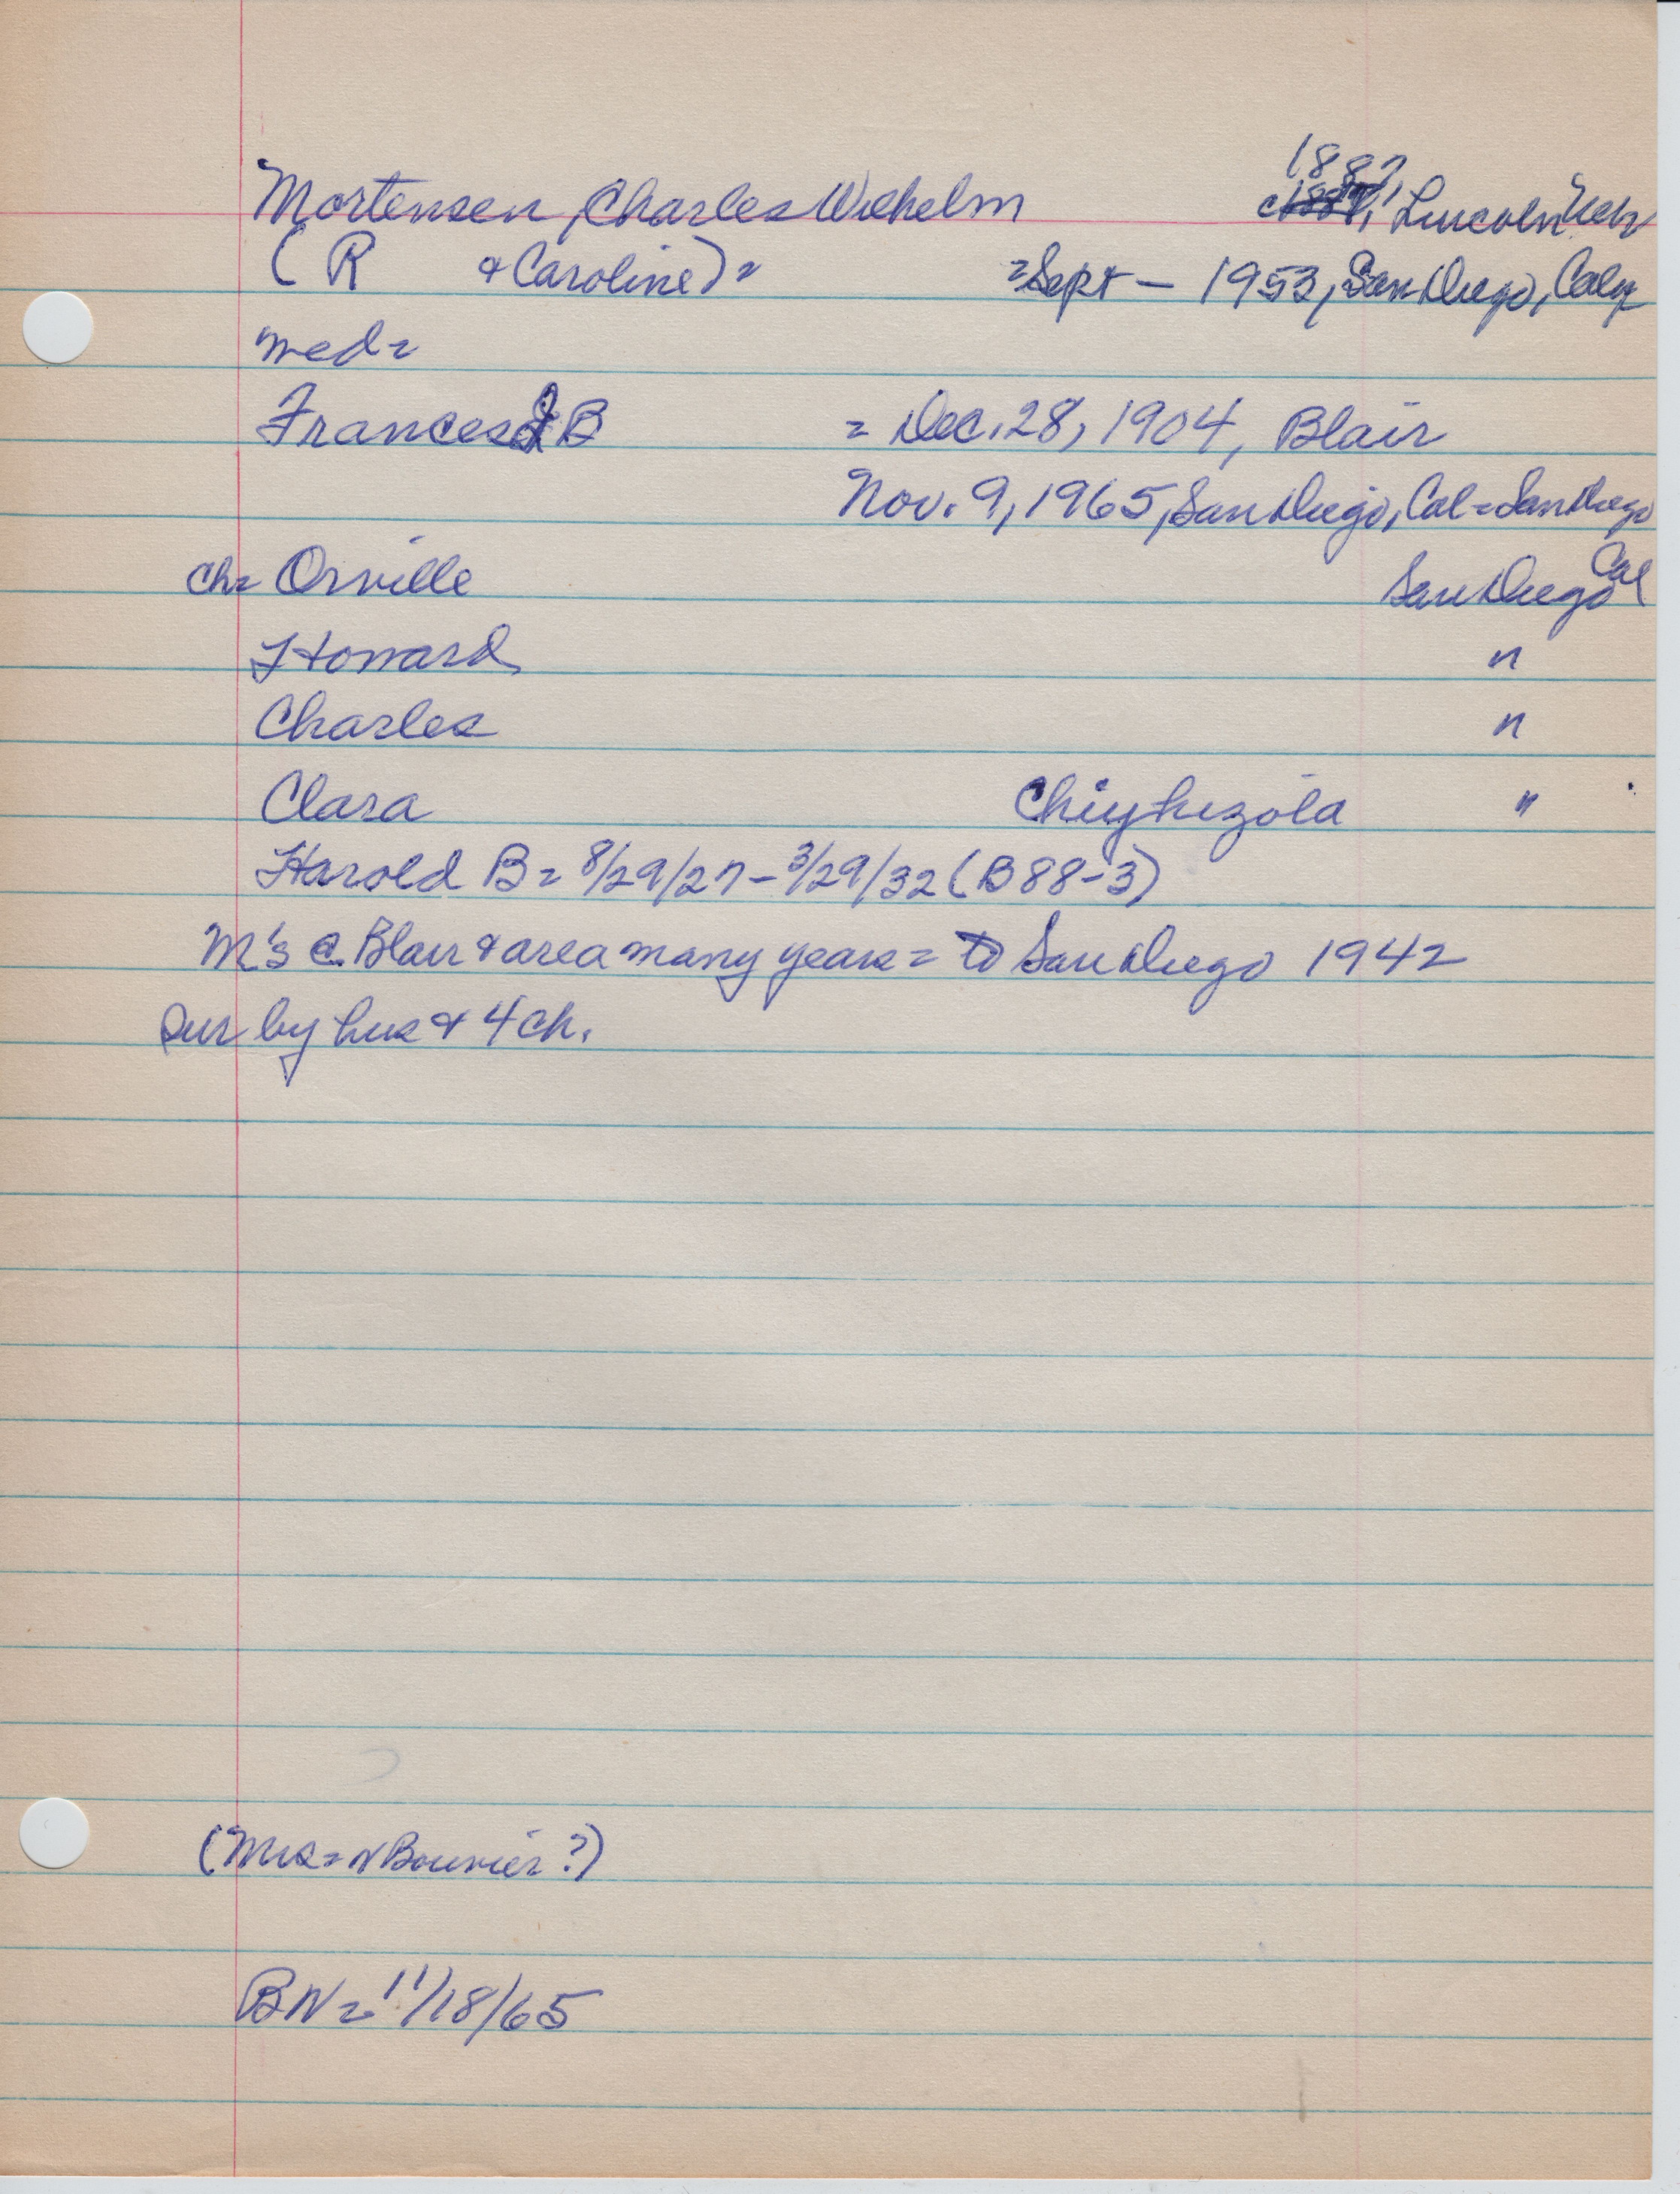 1887
Mortensen, Charles Wilhelm c , Lincoln Neb
( R & Caroline) = = Sept — 1953, San Diego, Calif
med =
Frances J B = Dec. 28, 1904, Blair
Nov. 9, 1965, San Diego, Cal = San Diego
ch = Orville San Diego Cal
Howard "
Charles "
Clara "
Harold B = 8/29/27 - 3/29/32 (B 88-3)
M's @ Blair & area many years = to San Diego 1942
sur by hus & 4 ch.
(Mrs = N Bouvier ?)
BN = 11/18/65